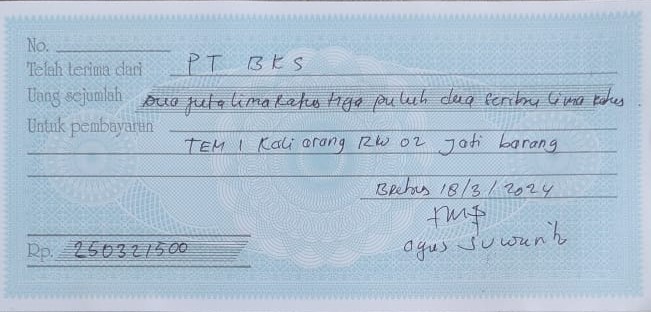 No.
Telah terima dari PT BKS
Uang sejumlah Dua juta lima Ratus tiga puluh dua seribu lima ratus
Untuk pembayaran
TEM 1 Kali orang RW 02 Jati barang
Brebes 18/3/2024
Agus Suwarih
Rp. 250321500